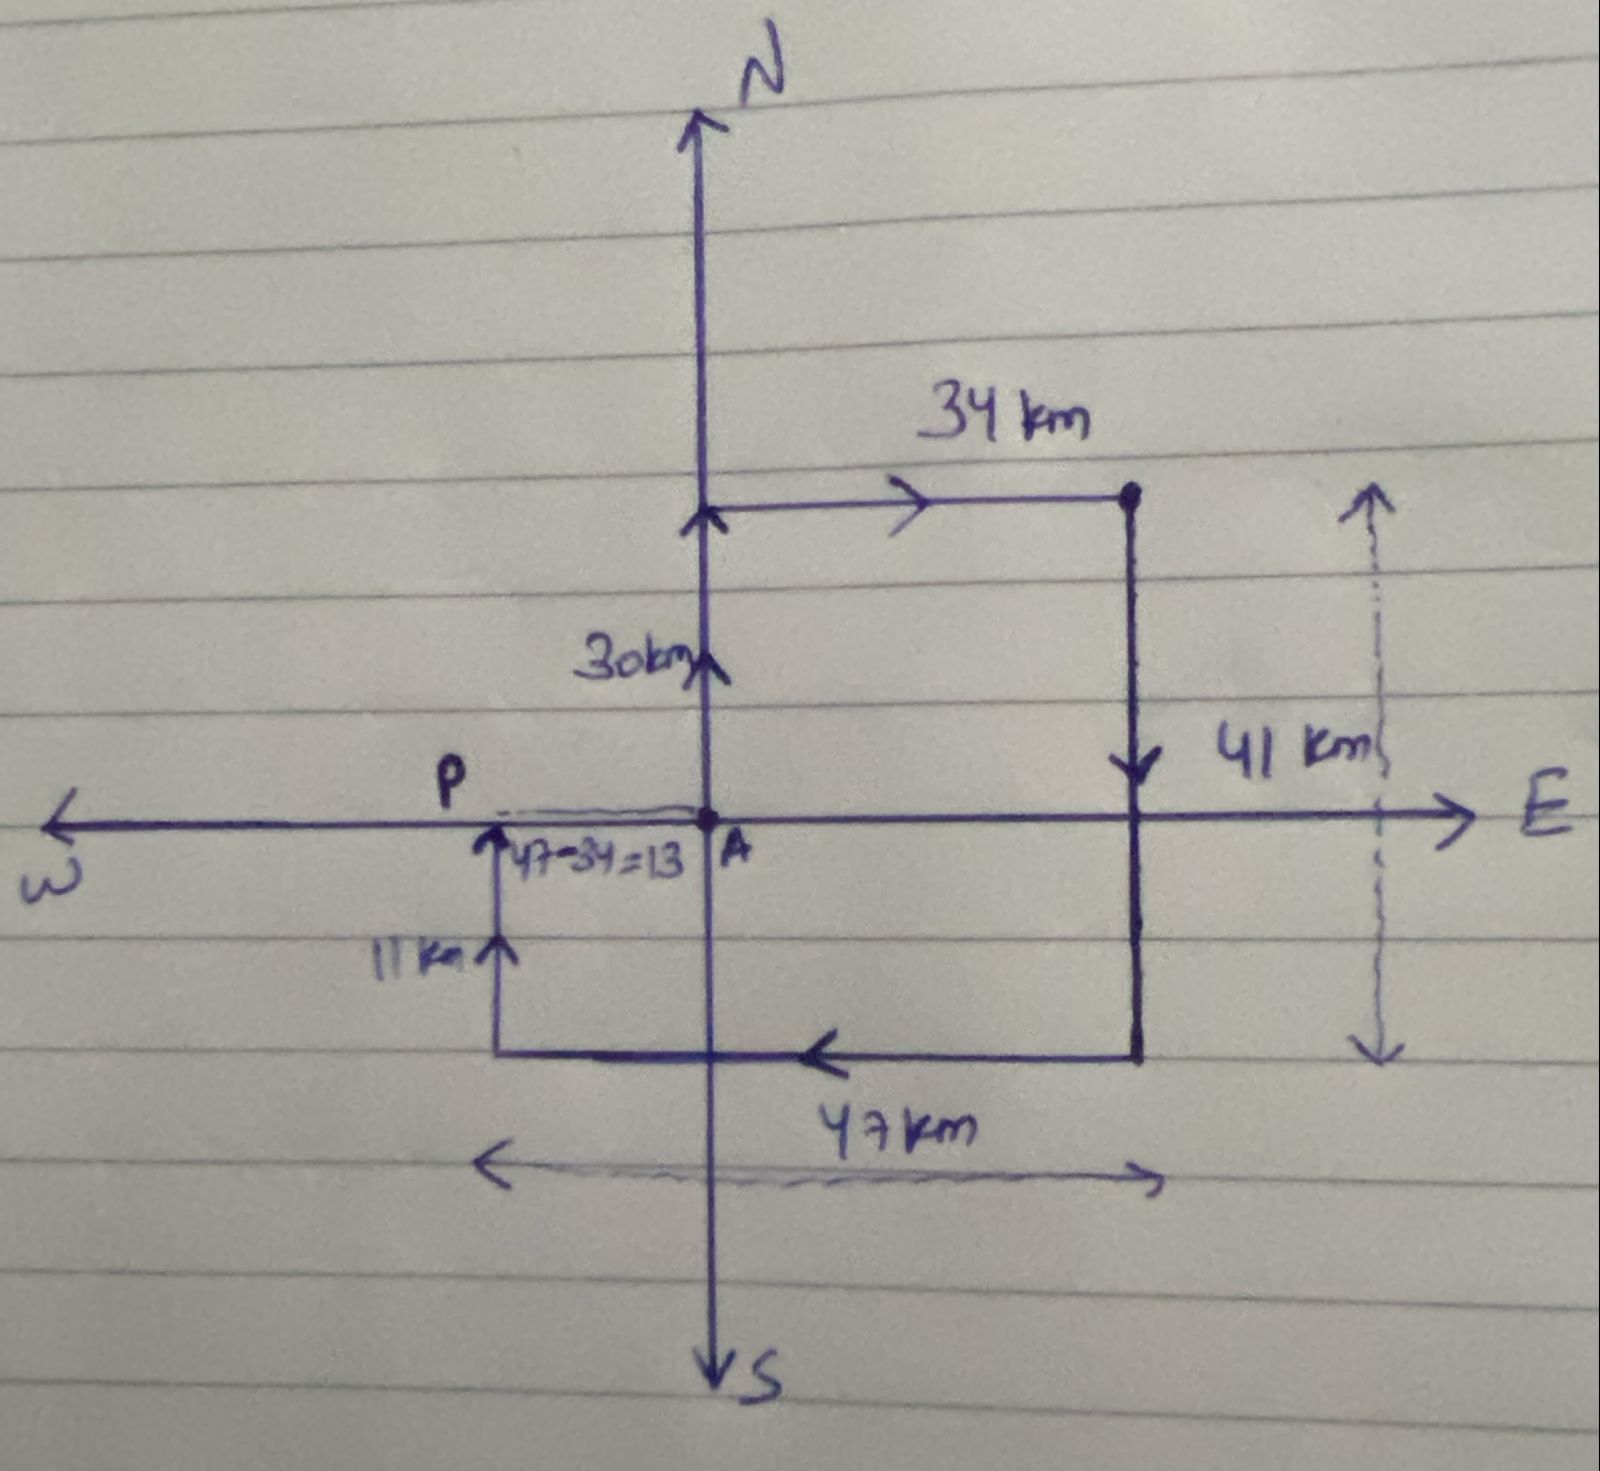 N
34 km
30km
41 km
P
E
47-34=13
A
W
11 km
47km
S